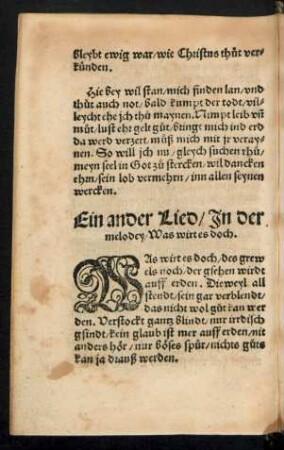 bleybt ewig war/wie Christus thůt ver-
künden.
Hie bey wil stan/mich finden lan/vnd
thůt auch not/bald kumpt der todt/vil-
leycht ehe ich thů maynen. Nimpt leib vñ
můt/lust ehr gelt gůt/bringt mich ind erd
da werd verzert/můß mich mit jr veray-
nen. So will ich nu/gleych suchen thů/
meyn seel in Got zů stercken/wil dancken
ehm/sein lob vermehrn/inn allen seynen
wercken.
Ein ander Lied/In der
melodey/Was wirt es doch.
WAs wirt es doch/des grew
els noch/der gsehen wirdt
auff erden. Die weyl all
stendt/sein gar verblendt/
das nicht wol gůt kan wer
den. Verstockt gantz blindt/nur irrdisch
gsindt/kein glaub ist mer auff erden/nit
anders hör/nur böses spür/nichts gůts
kan ja drauß werden.